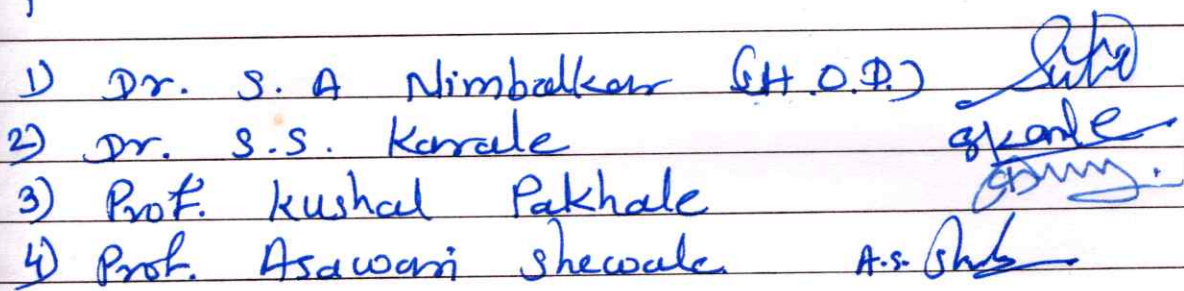 1) Dr. S. A Nimbalkar (H.O.D.)
2) Dr. S.S. Karale
3) Prof. Kushal Pakhale
4) Prof. Asawari Shewale A.S.